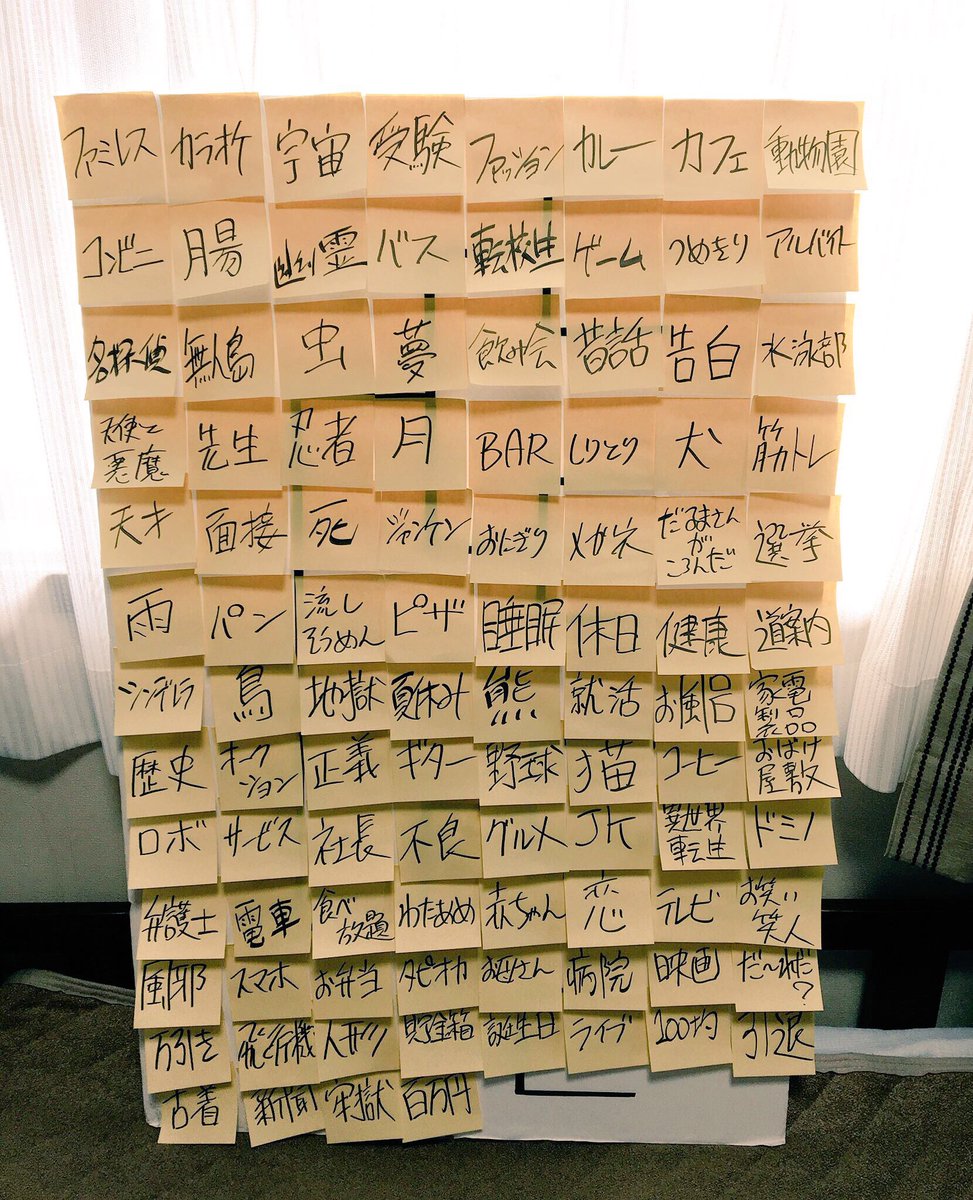 ファミレス カラオケ 宇宙 受験 ファッション カレー カフェ 動物園
コンビニ 腸 幽霊 バス 転校生 ゲーム つめきり アルバイト
名探偵 無人島 虫 夢 飲み会 昔話 告白 水泳部
天使と 悪魔 先生 忍者 月 BAR しりとり 犬 筋トレ
天才 面接 死 ジャンケン おにぎり メガネ だるまさん が ころんだ 選挙
雨 パン 流し そうめん ピザ 睡眠 休日 健康 道案内
シンデレラ 鳥 地獄 夏休み 熊 就活 お風呂 家電 製品
歴史 オーク ション 正義 ギター 野球 猫 コーヒー おばけ 屋敷
ロボ サービス 社長 不良 グルメ JK 異世界 転生 ドミノ
弁護士 電車 食べ 放題 わたあめ 赤ちゃん 恋 テレビ お笑い 笑人
風邪 スマホ お弁当 タピオカ お母さん 病院 映画 だ〜れだ ?
万引き 飛行機 人形 貯金箱 誕生日 ライブ 100均 引退
古着 新聞 牢獄 百万円